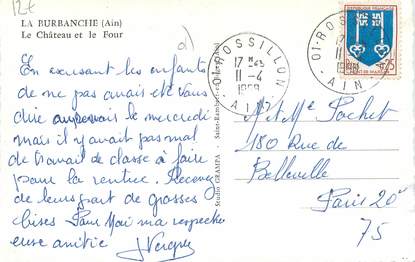 12€
LA BURBANCHE (Ain)
Le Château et le Four
En excusant les enfants
de ne pas avoir été vous
dire au revoir le mercredi
mais il y avait pas mal
de travail de classe à faire
pour la rentrée. Recevez
de leurs part de grosses
bises Pour moi ma respectu
euse amitié
Studio GRAMPA - Saint-Rambert-en-Bugey
01-ROSSILLON
17 H 45
11-4
1968
AIN
01-ROSSILLON
11
1968
AIN
REPUBLIQUE FRANCAISE
0,25
MONT-DE-MARSAN
M et Me Pochet
180 Rue de
Belleville
Paris 20e
75